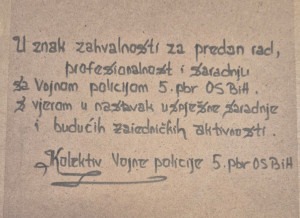 U znak zahvalnosti za predan rad,
profesionalnost i saradnju
sa Vojnom policijom 5.pbr OSBiH.
S vjerom u nastavak uspješne saradnje
i budućih zajedničkih aktivnosti.
Kolektiv Vojne policije 5.pbr OSBiH